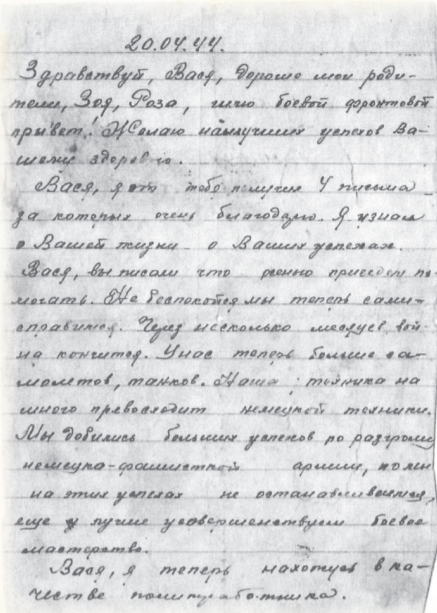 20.04.44.
Здравствуй, Вася, дорогие мои роди-
тели, Зоя, Роза, шлю боевой фронтовой
привет! Желаю наилучших успехов Ва-
шему здоровью.
Вася, я от тебя получил 4 письма
за которых очень благодарю. Я узнал
о Вашей жизни о Ваших успехах.
Вася, вы писали что приедем по-
могать. Не беспокойтся мы теперь сами
справимся. Через несколько месяцев вой-
на кончится. У нас теперь больше са-
молетов, танков. Наша техника на
много превосходит немецкой техники.
Мы добились больших успехов по разгрому
немецко-фашисткой армии, но мы
на этих успехах не останавливаемся,
еще лучше усовершенствуем боевое
мастерство.
Вася, я теперь нахожусь в ка-
честве политработника.